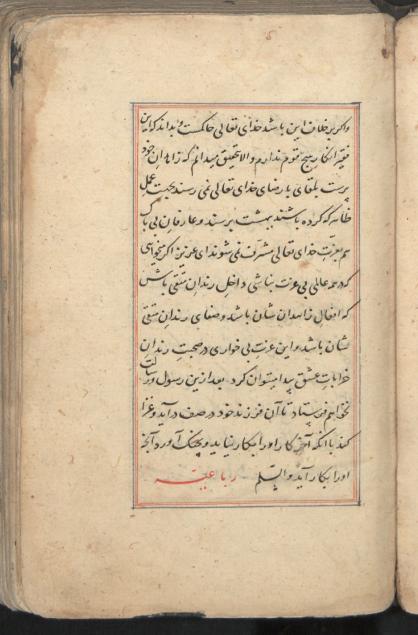 و اگر بر خلاف این باشد خدای تعالی حاکمست و بداند که این
فقیر انکار هیچ قوم ندارم و الا تحقیق میدانم که زاهدان خود
پرست بلقای با رضای خدای تعالی نمی رسند بجهت عمل
ظاهر که کرده باشند ببهشت برسند و عارفان بی باک
هم بعزت خدای تعالی مشرف نمی شوند ای عزیز اگر میخواهی
که در همه عالم بی عزت نباشی داخل رندان متقی باش
که افعال زاهدان شان باشد و صفای رندان متقی
شان باشد و این عزت بی خواری در صحبت رندان
خرابات عشق پیدا میتوان کرد بعد ازین رسول و رسالت
نخواهم فرستاد تا آن فرزند خود در صف درآید و غزا
کند با آنکه آخر کار او را بکار نیاید و بچنگ آورد آنچه
او را بکار آید والسلم رباعیه